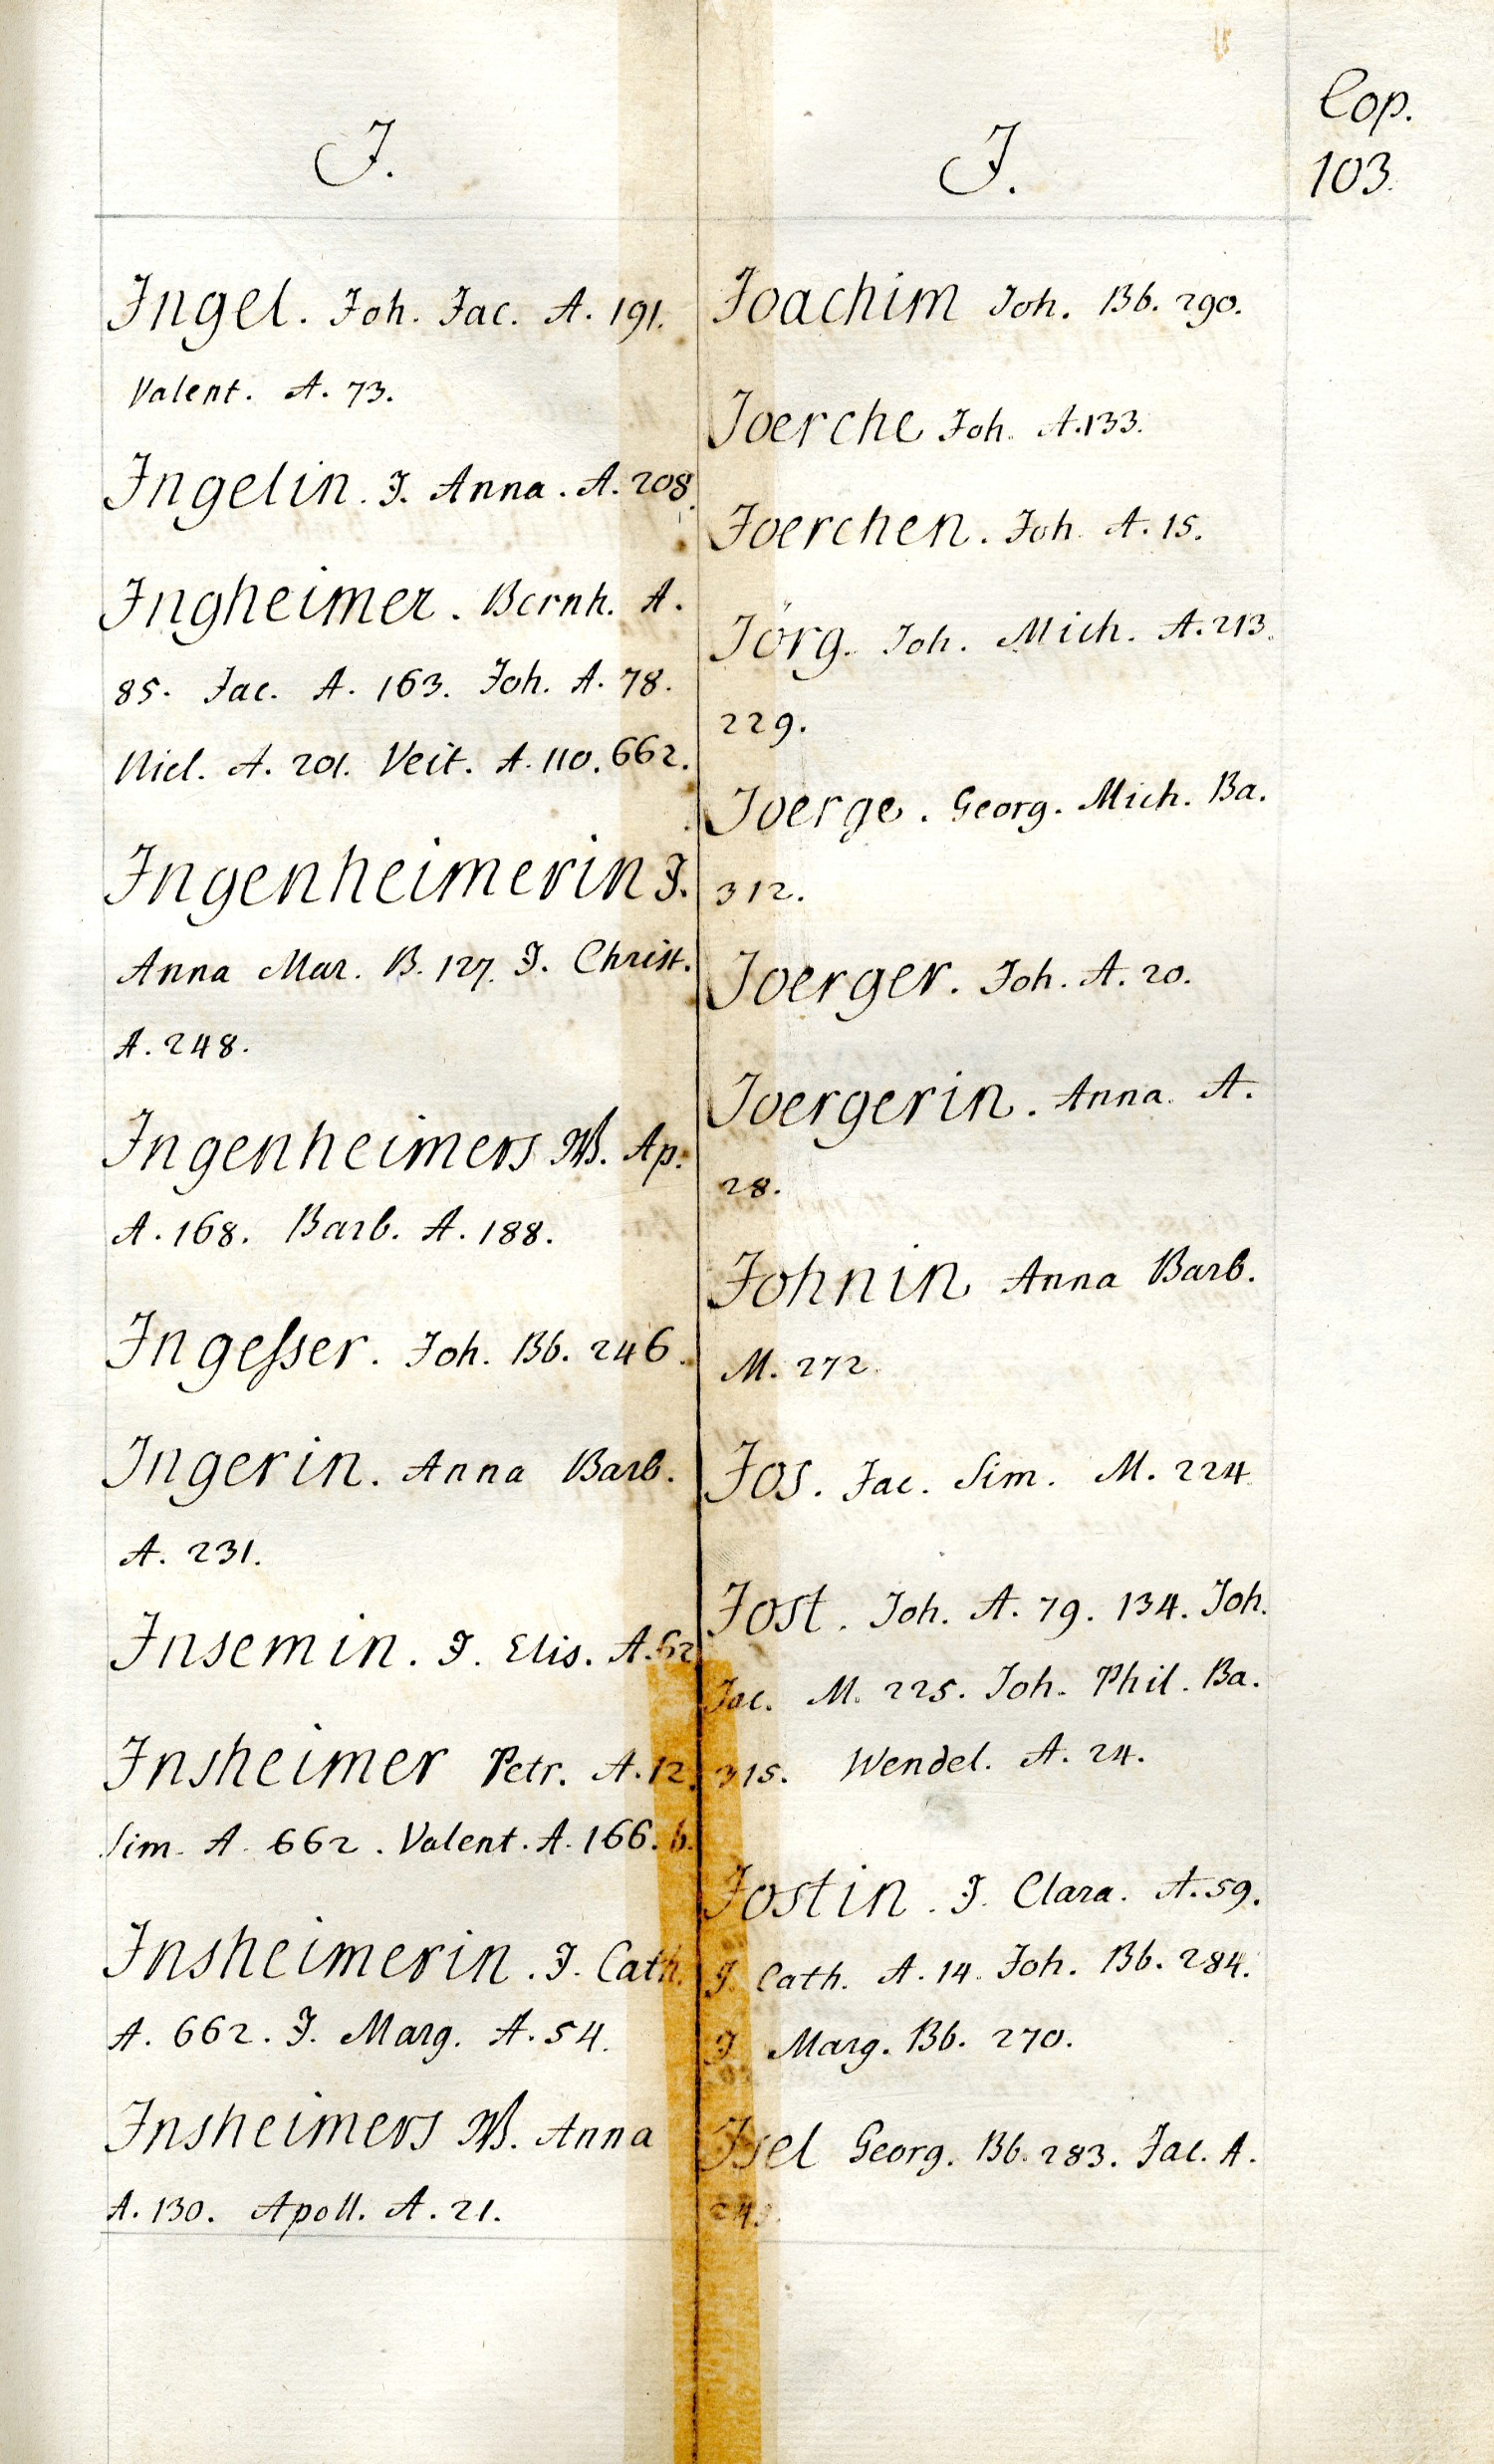 Cop.
103.
J.
Ingel. Joh. Jac. A. 191.
Valent. A. 73.
Ingelin. J. Anna. A. 208.
Ingheimer. Bernh. A.
85. Jac. A. 163. Joh. A. 78.
Nicl. A. 201. Veit. A. 110. 662.
Ingenheimerin J.
Anna Mar. B. 127. J. Christ.
A. 248.
Ingenheimers W. Ap.
A. 168. Barb. A. 188.
Ingeſser. Joh. Bb. 246.
Ingerin. Anna Barb.
A. 231.
Insemin. J. Elis. A. 62
Insheimer Petr. A. 12.
Sim. A. 662. Valent. A. 166. b.
Insheimerin. J. Cath.
A. 662. J. Marg. A. 54.
Insheimers W. Anna
A. 130. Apoll. A. 21.
J.
Joachim Joh. Bb. 290.
Joerche Joh. A. 133.
Joerchen. Joh. A. 15.
Jörg. Joh. Mich. A. 213.
229.
Joerge. Georg. Mich. Ba.
312.
Joerger. Joh. A. 20.
Joergerin. Anna. A.
28.
Johnin Anna Barb.
M. 272.
Jos. Jac. Sim. M. 224.
Jost. Joh. A. 79. 134. Joh.
Jac. M. 225. Joh. Phil. Ba.
315. Wendel. A. 24.
Jostin. J. Clara. A. 59.
J. Cath. A. 14. Joh. Bb. 284.
J. Marg. Bb. 270.
Isel Georg. Bb. 283. Jac. A.